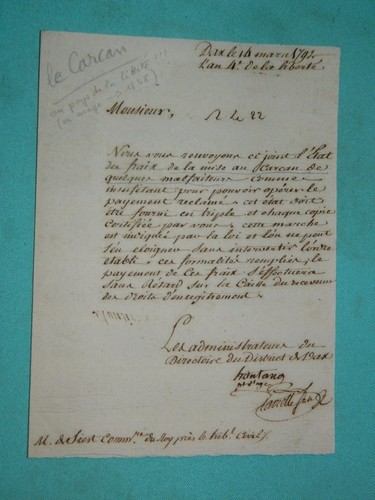 le Carcan !!!
au pays de la liberté
(en usage 1838)
Dax le 14 mars 1792
L'an 4e. de la liberté
Monsieur,
Nous vous renvoyons ci joint l'Etat
des fraix de la mise au Carcan de
quelques malfaiteurs comme
insufisant pour pouvoir opérer le
payement reclamé. cet état doit
être fourni en triple et chaque copie
certifiée par vous; cette marche
est indiquée par la loi et l'on ne peut
s'en eloigner sans intervertir l'ordre
etabli. ces formalités remplies, le
payement de ces fraix s'effectuera
sans retard sur la Caisse du receveur
des droits d'enregitrement.
Les administrateurs du
Directoire du District de Dax
M. de Siest Commre. du Roy près le tribl. Civil